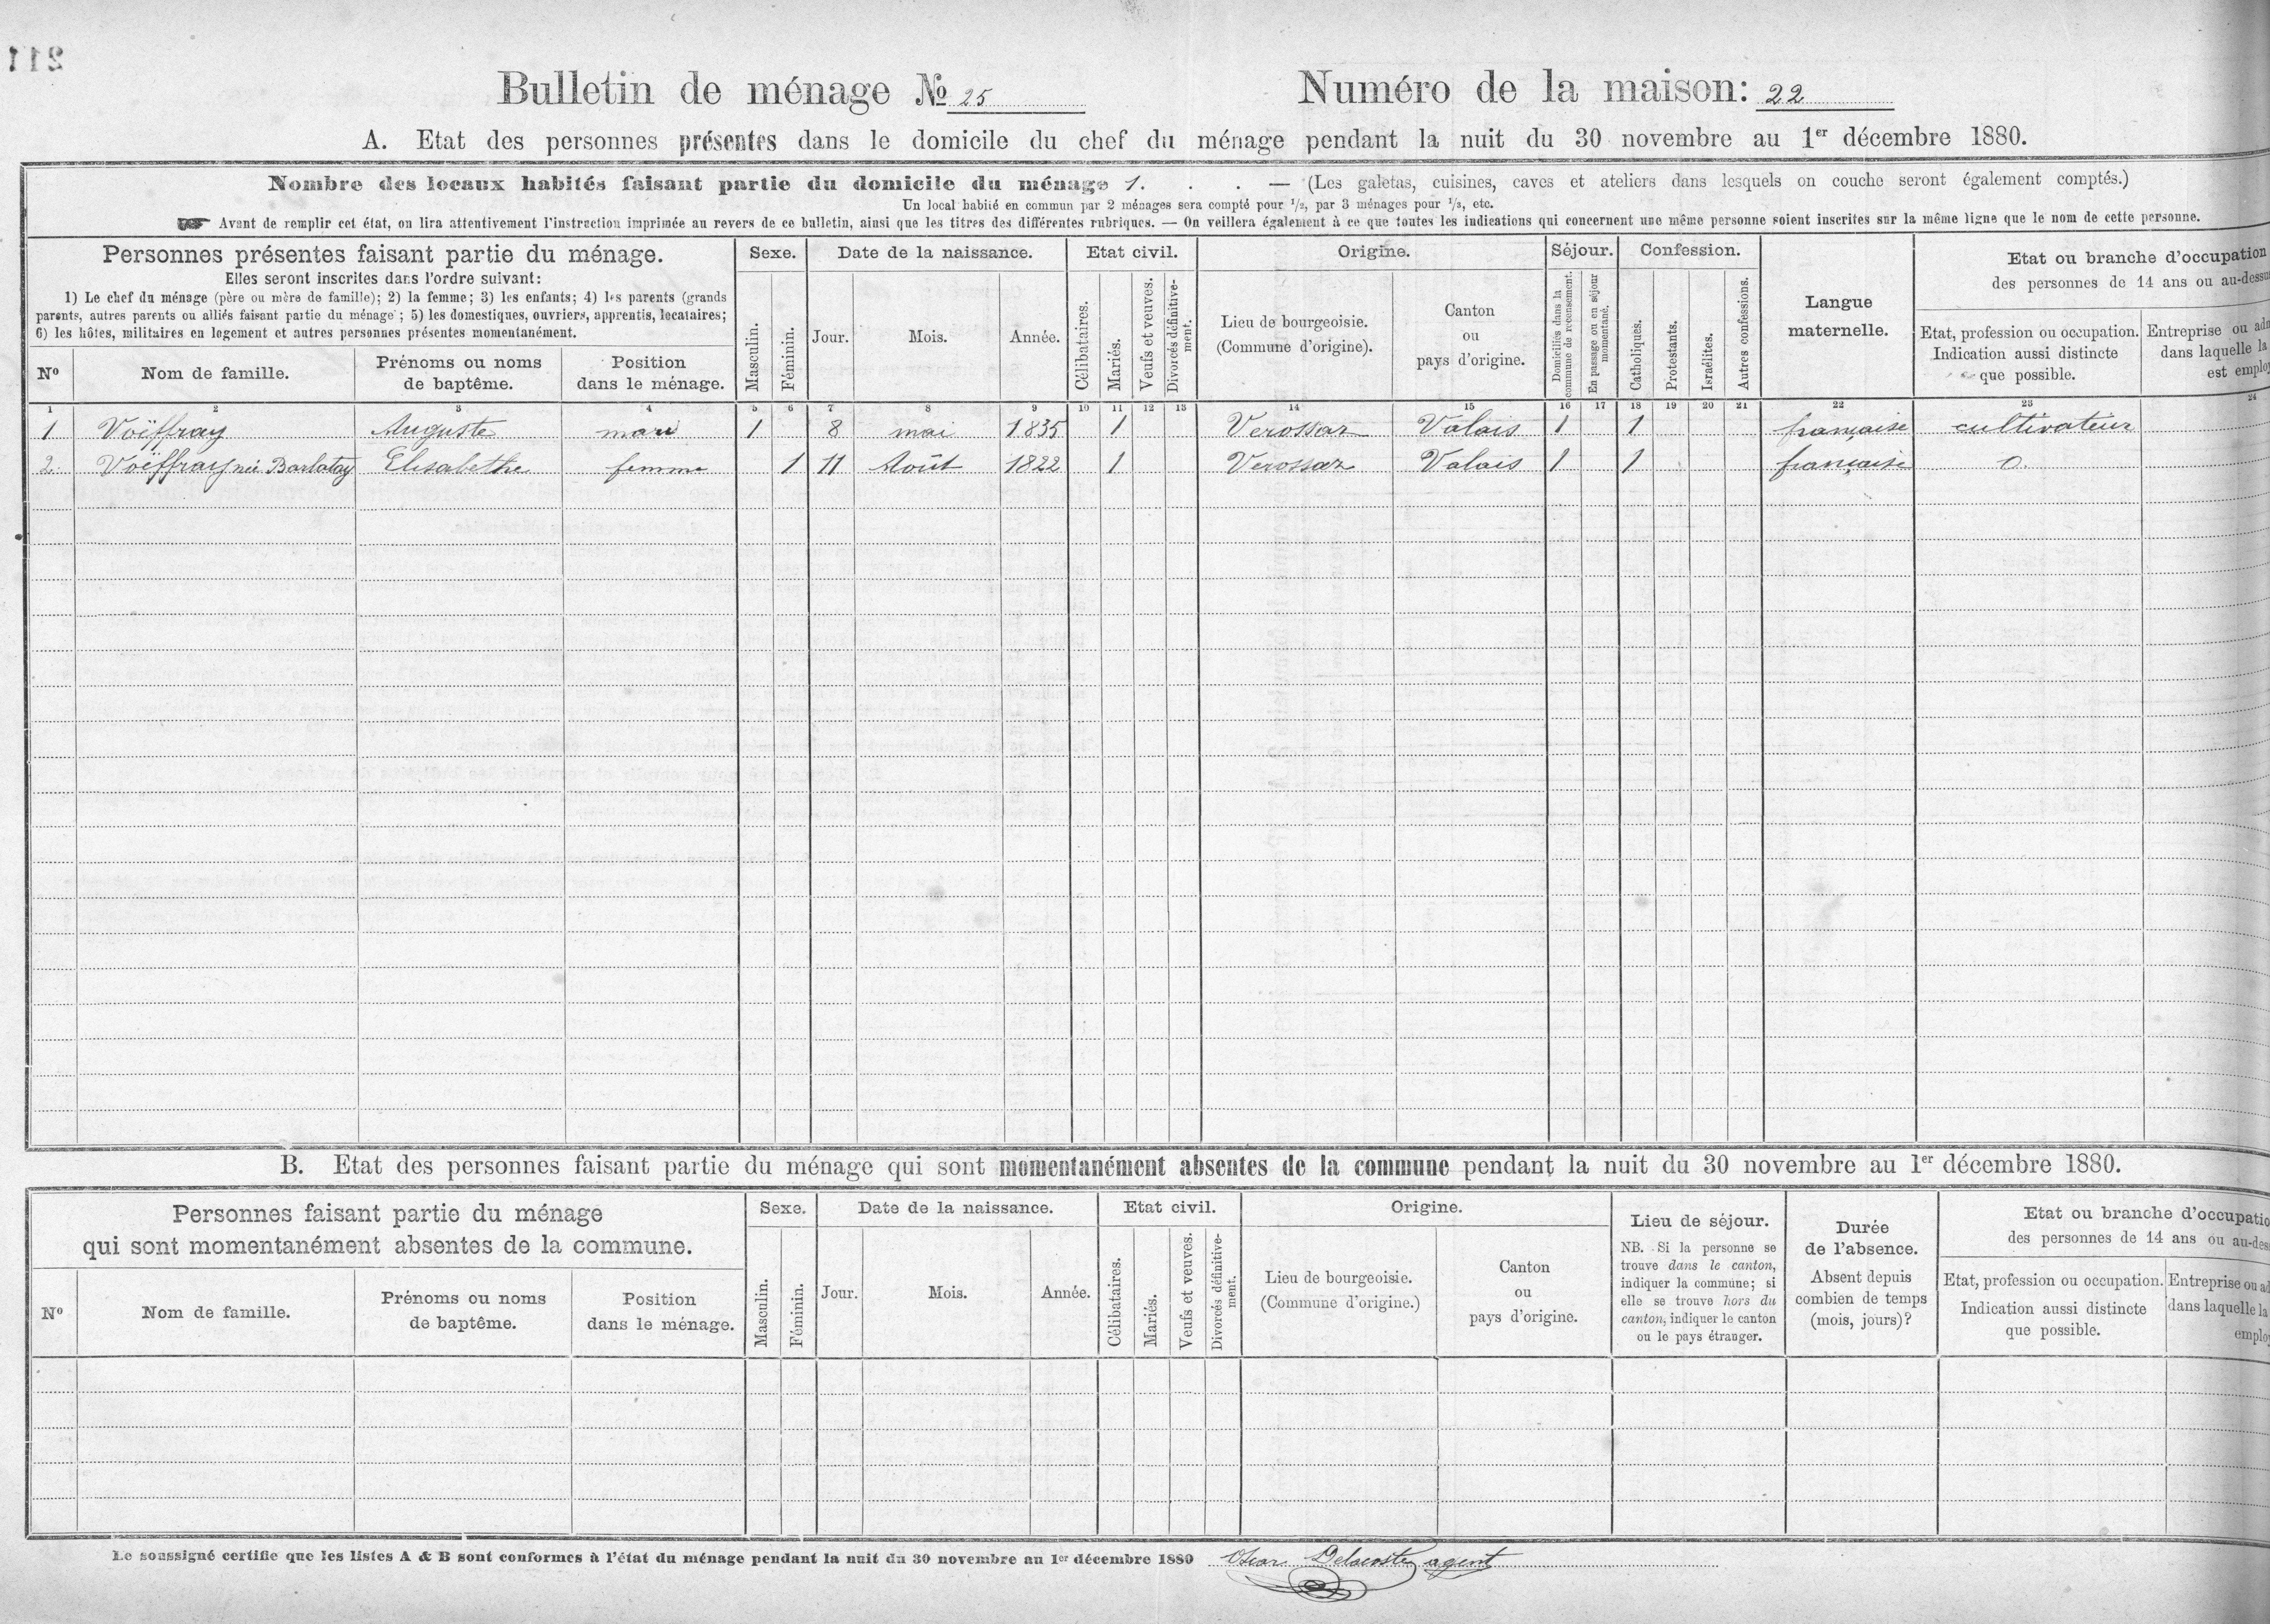 211
Bulletin de ménage № 25
Numéro de la maison: 22
A. Etat des personnes présentes dans le domicile du chef du ménage pendant la nuit du 30 novembre au 1er décembre 1880.
Nombre des locaux habités faisant partie du domicile du ménage 1. . . — (Les galetas, cuisines, caves et ateliers dans lesquels on couche seront également comptés.)
Un local habité en commun par 2 ménages sera compté pour 1/2, par 3 ménages pour 1/3, etc.
Avant de remplir cet état, on lira attentivement l'instruction imprimée au revers de ce bulletin, ainsi que les titres des différentes rubriques. — On veillera également à ce que toutes les indications qui concernent une même personne soient inscrites sur la même ligne que le nom de cette personne.
Personnes présentes faisant partie du ménage.
Elles seront inscrites dans l'ordre suivant:
1) Le chef du ménage (père ou mère de famille); 2) la femme; 3) les enfants; 4) les parents (grands
parents, autres parents ou alliés faisant partie du ménage); 5) les domestiques, ouvriers, apprentis, locataires;
6) les hôtes, militaires en logement et autres personnes présentes momentanément.
Nº
Nom de famille.
Prénoms ou noms
de baptême.
Position
dans le ménage.
Sexe.
Masculin.
Féminin.
Date de la naissance.
Jour.
Mois.
Année.
Etat civil.
Célibataires.
Mariés.
Veufs et veuves.
Divorcés définitive-
ment.
Origine.
Lieu de bourgeoisie.
(Commune d'origine).
Canton
ou
pays d'origine.
Séjour.
Domiciliées dans la
commune de recensement.
En passage ou en séjour
momentané.
Confession.
Catholiques.
Protestants.
Israélites.
Autres confessions.
Langue
maternelle.
Etat ou branche d'occupation
des personnes de 14 ans ou au-dessu
Etat, profession ou occupation.
Indication aussi distincte
que possible.
Entreprise ou adm
dans laquelle la
est employ
1 2 3 4 5 6 7 8 9 10 11 12 13 14 15 16 17 18 19 20 21 22 23 24
1 Voëffray Auguste mari 1 8 mai 1835 1 Verossaz Valais 1 1 française cultivateur
2. Voëffray née Barlatay Elisabethe femme 1 11 Août 1822 1 Verossaz Valais 1 1 française 0.
B. Etat des personnes faisant partie du ménage qui sont momentanément absentes de la commune pendant la nuit du 30 novembre au 1er décembre 1880.
Personnes faisant partie du ménage
qui sont momentanément absentes de la commune.
Nº
Nom de famille.
Prénoms ou noms
de baptême.
Position
dans le ménage.
Sexe.
Masculin.
Féminin.
Date de la naissance.
Jour.
Mois.
Année.
Etat civil.
Célibataires.
Mariés.
Veufs et veuves.
Divorcés définitive-
ment.
Origine.
Lieu de bourgeoisie.
(Commune d'origine.)
Canton
ou
pays d'origine.
Lieu de séjour.
NB. Si la personne se
trouve dans le canton,
indiquer la commune; si
elle se trouve hors du
canton, indiquer le canton
ou le pays étranger.
Durée
de l'absence.
Absent depuis
combien de temps
(mois, jours)?
Etat ou branche d'occupatio
des personnes de 14 ans ou au-des
Etat, profession ou occupation.
Indication aussi distincte
que possible.
Entreprise ou ad
dans laquelle la
employ
Le soussigné certifie que les listes A & B sont conformes à l'état du ménage pendant la nuit du 30 novembre au 1er décembre 1880 Oscar Delacoste, agent